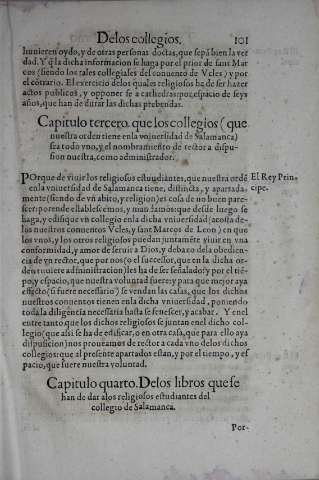 De los collegios. 101
huuieren oydo, y de otras personas doctas, que sepã bien la ver
dad. Y q̃ la dicha informacion se haga por el prior de sant Mar
cos (siendo los tales collegiales del conuento de Vcles) y por
el cõtrario. El exercicio delos quales religiosos ha de ser hazer
actos publicos, y opponer se a cathedras: por espacio de seys
años, que han de durar las dichas prebendas.
Capitulo tercero, que los collegios (que
nuestra orden tiene enla vniuersidad de Salamanca)
sea todo vno, y el nombramiento de rector a dispu-
sion nuestra, como administrador.
POrque de viuir los religiosos estudiantes, que nuestra ordẽ El Rey Prin
enla vniuersidad de Salamanca tiene, distincta, y apartada- cipe.
mente (siendo de vn abito, y religion) es cosa de no buen pare-
scer: porende establescemos, y mandamos: que desde luego se
haga, y edifique vn collegio enla dicha vniuersidad (acosta de-
los nuestros conuentos Vcles, y sant Marcos de Leon) en que
los vnos, y los otros religiosos puedan juntamẽte viuir en vna
conformidad, y amor de seruir a Dios, y debaxo dela obedien-
cia de vn rector, que por nos (o el successor, que en la dicha or-
den tuuiere administracion) les ha de ser señalado: y por el tiẽ-
po, y espacio, que nuestra voluntad fuere: y para que mejor aya
effecto (si fuere necessario) se vendan las casas, que los dichos
nuestros conuentos tienen enla dicha vniuersidad, poniendo
toda la diligencia necessaria hasta se fenescer, y acabar. Y enel
entre tanto que los dichos religiosos se juntan enel dicho col-
legio (que assi se ha de edificar, o en otra casa, que para ello aya
dispusicion) nos proueamos de rector a cada vno delos dichos
collegios: que al presente apartados estan, y por el tiempo, y es
pacio, que fuere nuestra voluntad.
Capitulo quarto. De los libros que se
han de dar alos religiosos estudiantes del
collegio de Salamanca.
Por-